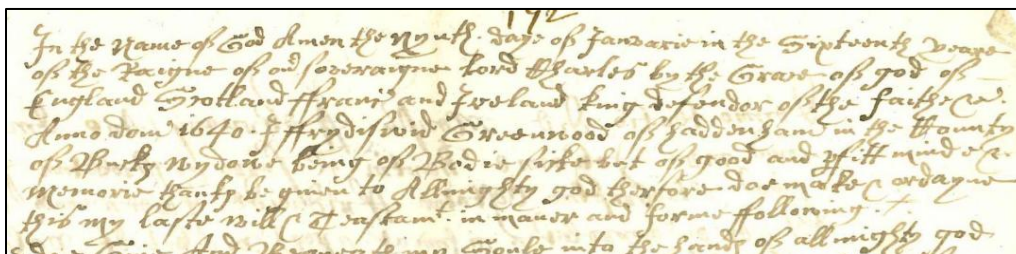 172
In the Name of God Amen the Nynth daye of Januarie in the Sixteenth yeare
of the Raigne of our soveraigne Lord Charles by the Grace of god of
England Scotland ffrance and Ireland king defendor of the faithe &c.
Anno dom 1640. I ffrydiswid Greenwood of Haddenham in the County
of Buck Wydowe being of Bodie sicke but of good and pfitt minde &
memorie thankes be given to Allmighty god therfore doe make & ordayne
this my laste will & Teastamt. in maner and forme following.
And Bequeath my Soule into the hands of all mighty god